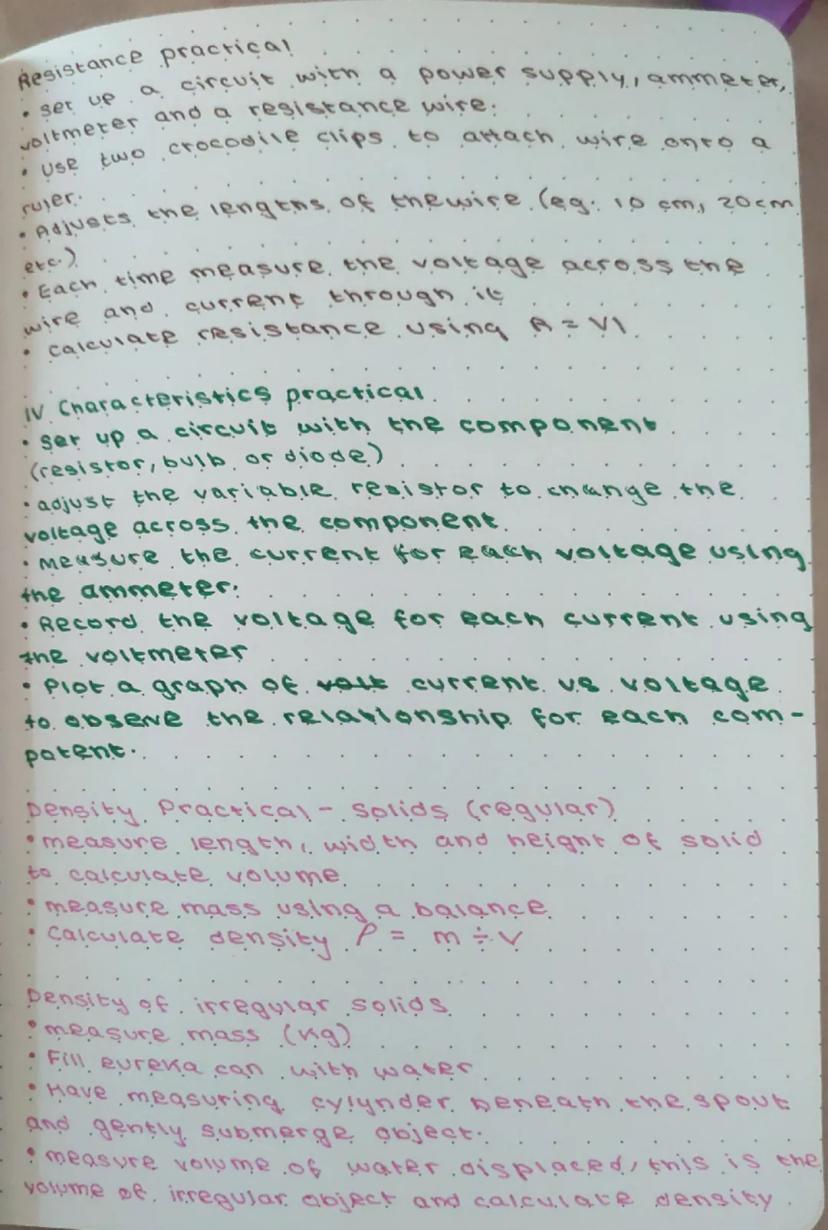 Resistance practical
• set up a circuit with a power supply, ammeter,
voltmeter and a resistance wire.
• Use two crocodile clips to attach wire onto a
ruler.
• Adjusts the lengths of the wire (eg: 10 cm, 20cm
etc.)
• Each time measure the voltage across the
wire and current through it
• calculate resistance using R = VI
IV Characteristics practical
• set up a circuit with the component
(resistor, bulb or diode)
• adjust the variable resistor to change the
voltage across the component
• measure the current for each voltage using
the ammeter.
• Record the voltage for each current using
the voltmeter
• Plot a graph of volt current vs voltage
to observe the relationship for each com-
potent.
Density Practical - solids (regular)
• measure length, width and height of solid
to calculate volume
• measure mass using a balance
• Calculate density ρ = m ÷ v
Density of irregular solids
• measure mass (Kg)
• Fill eureka can with water
• Have measuring cylynder beneath the spout
and gently submerge object.
• measure volume of water displaced, this is the
volume of irregular object and calculate density.